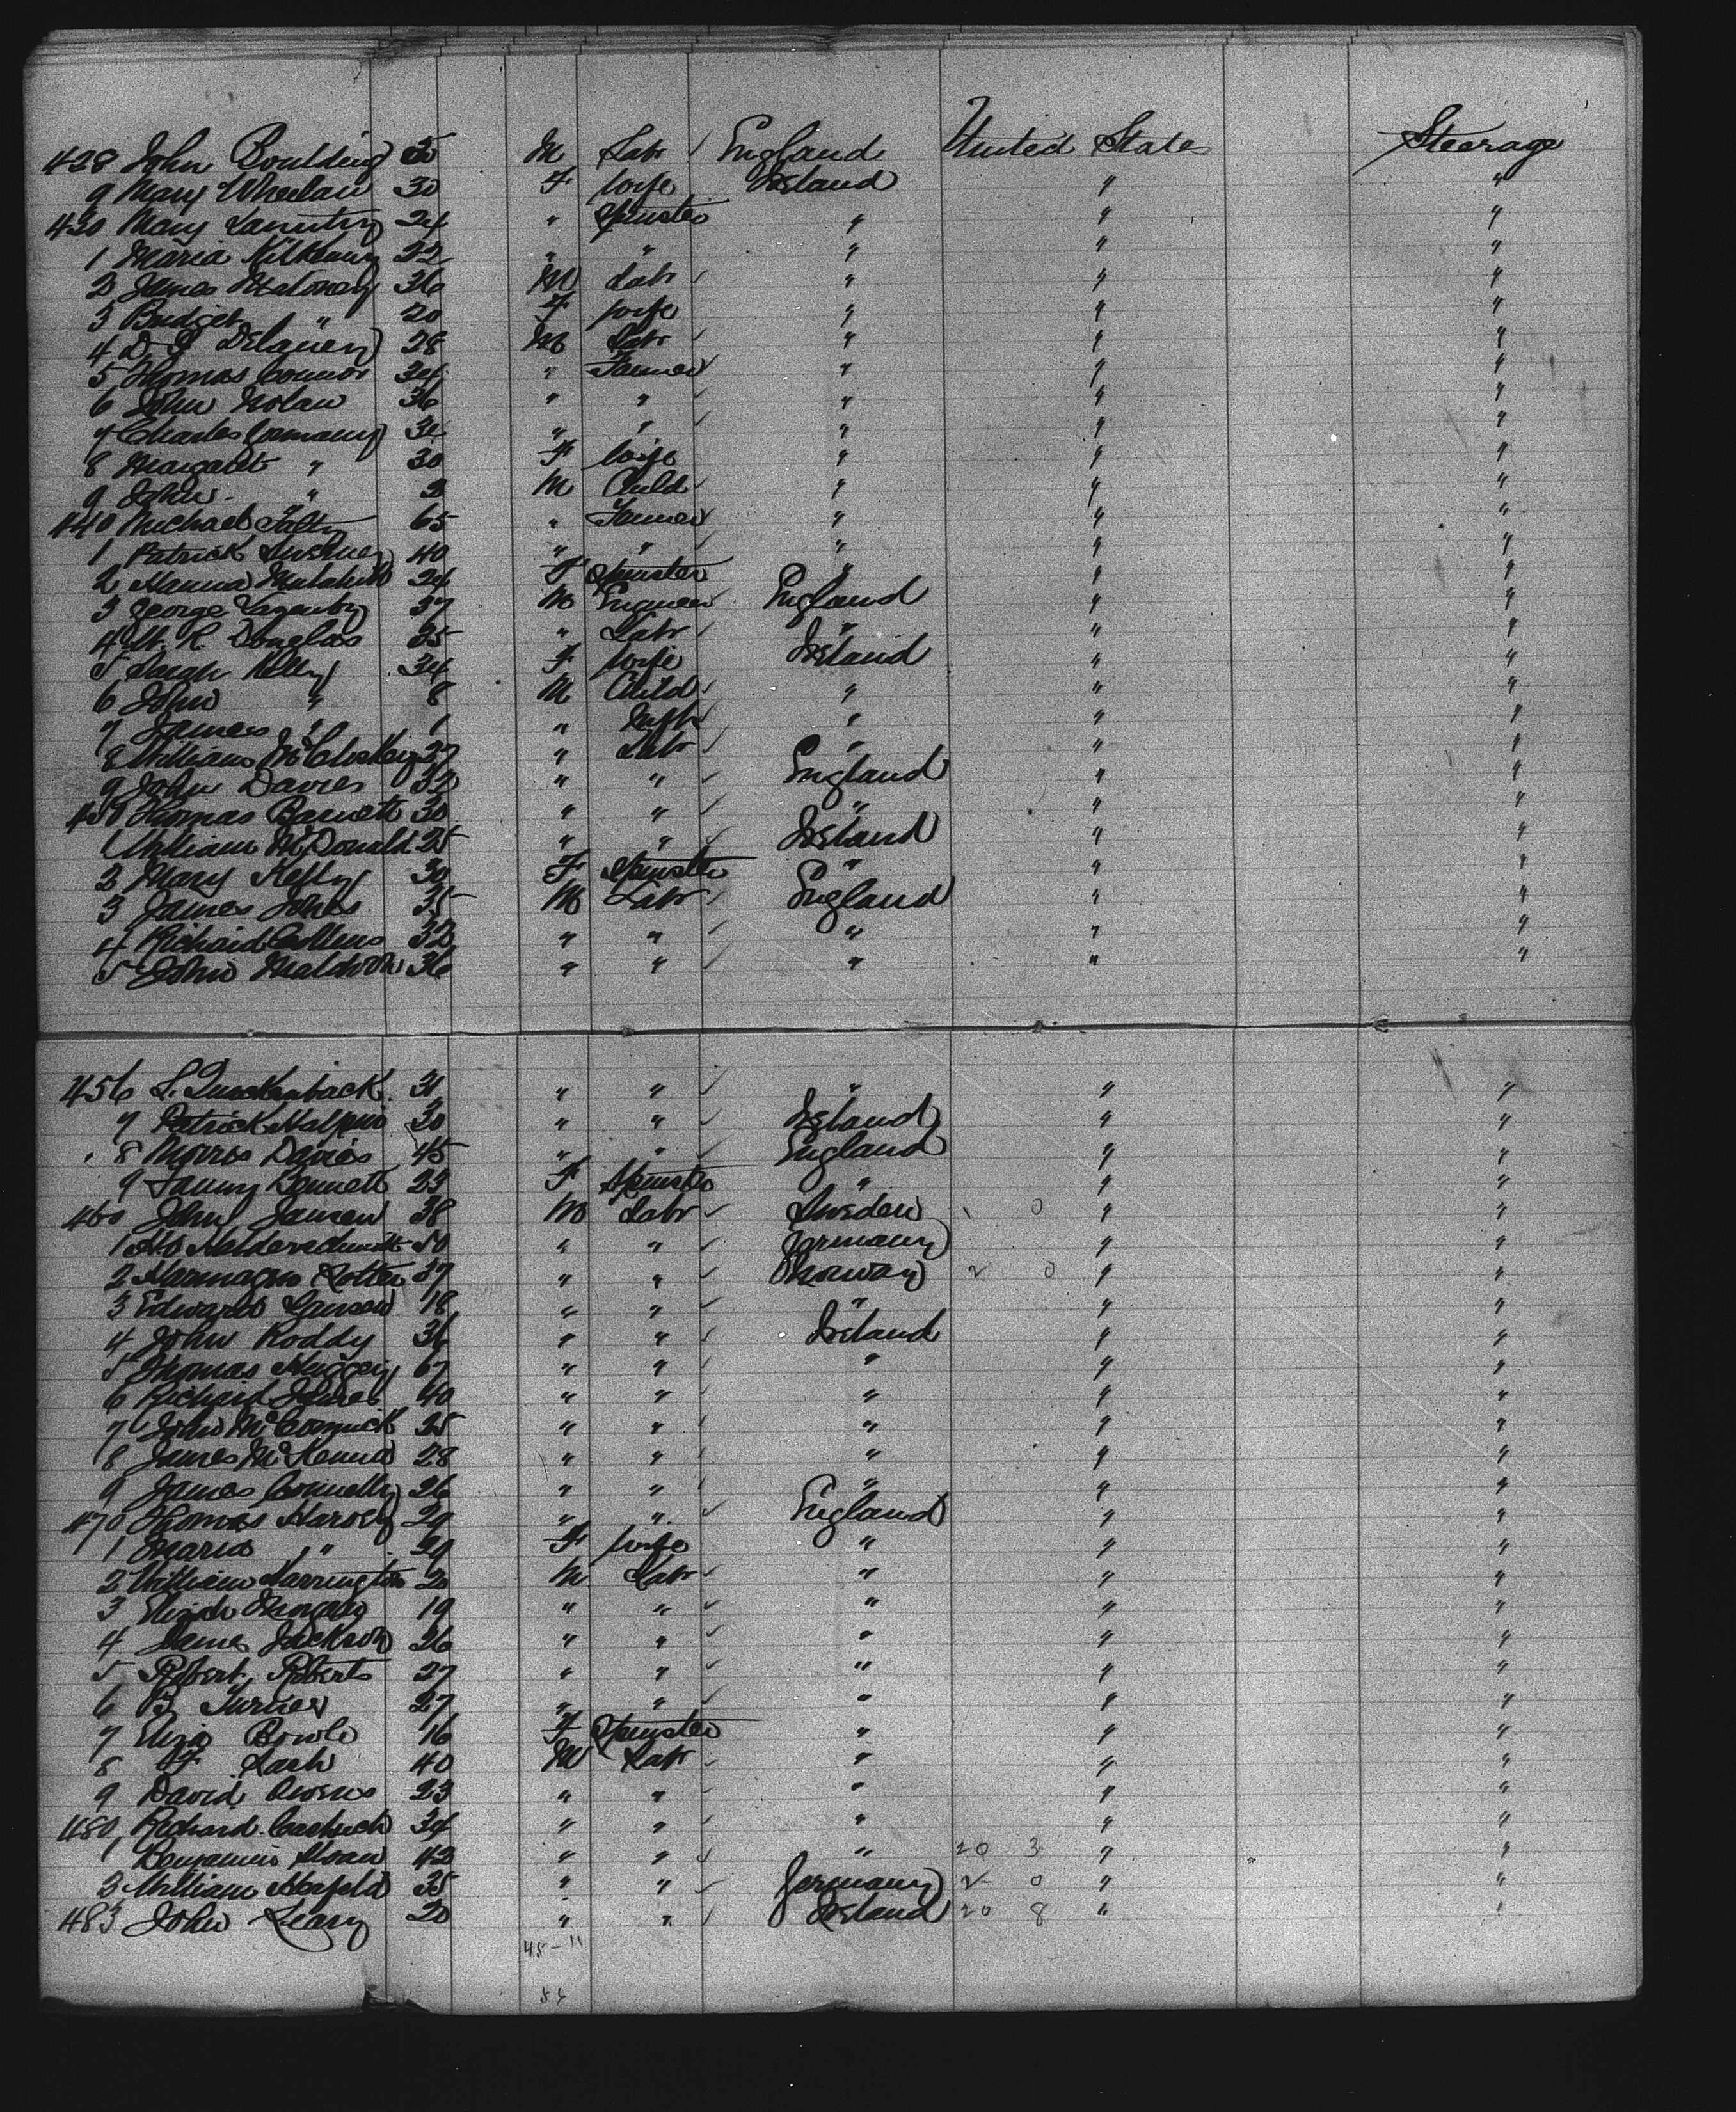 428 John Boulding 35 M Labr ✓ England United States Steerage
9 Mary Wheelan 30 F Wife Ireland " "
430 Mary 24 " Spinster " " "
1 Maria Kilkenny 22 " " " " "
2 James Maloney 36 M Labr ✓ " " "
3 Bridget " 20 F Wife " " "
4 D P Delaney 28 M Labr ✓ " " "
5 Thomas Connor 34 " Farmer " " "
6 John Nolan 36 " " ✓ " " "
7 Charles Gormany " " ✓ " " "
8 Margaret " 30 F Wife " " "
9 John " M Child ✓ " " "
440 Michael Falty 65 " Farmer " " "
1 Patrick 40 " " ✓ " " "
2 Hanna 24 F Spinster " " "
3 George Lazenby 37 M Engineer ✓ England " "
4 W. R. Douglas 35 " Labr ✓ " " "
5 Sarah Kelly 34 F Wife Ireland " "
6 John " 8 M Child ✓ " " "
7 James " 1 " Inft ✓ " " "
8 William McCloskey 27 " Labr ✓ " " "
9 John Davies 32 " " ✓ England " "
450 Thomas Barnett 30 " " ✓ " " "
1 William McDonald 25 " " ✓ Ireland " "
2 Mary Kelly 30 F Spinster " " "
3 James Jones 35 M Labr ✓ England " "
4 Richard Collens 32 " " ✓ " " "
5 John Maldron 36 " " ✓ " " "
456 L. Quackenback 31 " " ✓ " " "
7 Patrick Halpin 30 " " ✓ Ireland " "
8 Morris Davies 45 " " ✓ England " "
9 Fanny Bennett 23 F Spinster " " "
460 John Jansen 38 M Labr ✓ Sweden 0 " "
1 50 " " ✓ Germany " "
2 37 " " ✓ Norway 2 0 " "
3 Edward Jansen 18 " " ✓ " " "
4 John Roddy 36 " " ✓ Ireland " "
5 Thomas 67 " " ✓ " " "
6 Richard 40 " " ✓ " " "
7 John McCormick 25 " " ✓ " " "
8 James McKenna 28 " " ✓ " " "
9 James Connelly 26 " " ✓ " " "
470 Thomas Harvey 29 " " ✓ England " "
1 Maria " 29 F Wife " " "
2 William Harrington 20 M Labr ✓ " " "
3 19 " " ✓ " " "
4 James Jackson 26 " " ✓ " " "
5 Robert Roberts 27 " " ✓ " " "
6 B Turner 27 " " ✓ " " "
7 Eliza Bowle 16 F Spinster " " "
8 F Lash 40 M Labr ✓ " " "
9 David Owens 23 " " ✓ " " "
480 Richard 34 " " ✓ " " "
1 Benjamin Sloan 42 " " ✓ " 20 3 " "
2 William 35 " " ✓ Germany 2 0 " "
483 John Leary 20 " " ✓ Ireland 20 8 " "
45-11